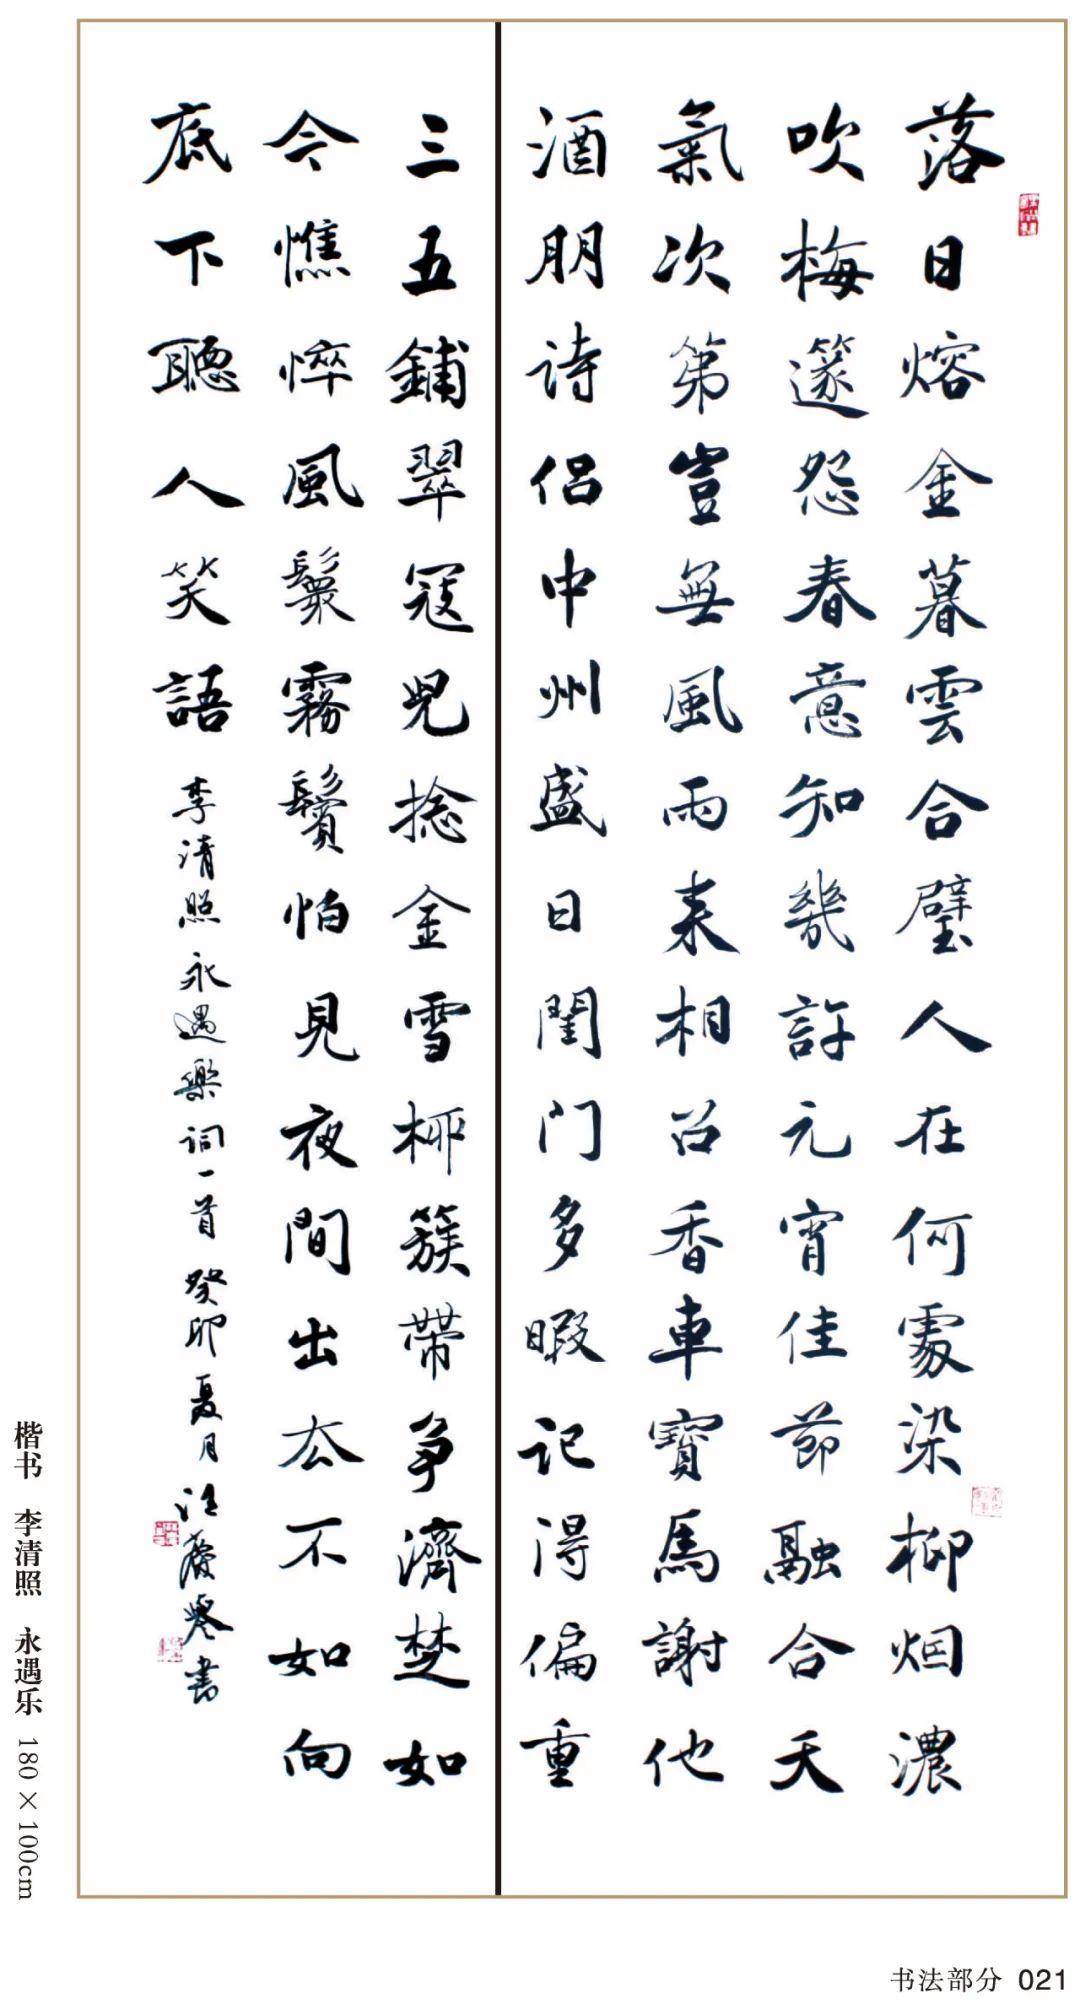 落日熔金暮雲合璧人在何處染柳烟濃
吹梅篴怨春意知幾許元宵佳節融合天
氣次第豈無風雨来相召香車寶馬謝他
酒朋詩侣中州盛日閨门多暇记得偏重
三五鋪翠冠兒捻金雪柳簇帶争濟楚如
今憔悴風鬟霧鬢怕見夜間出去不如向
底下聽人笑語 李清照永遇樂詞一首 癸卯夏月 汪書
楷书 李清照 永遇乐 180×100cm
书法部分 021